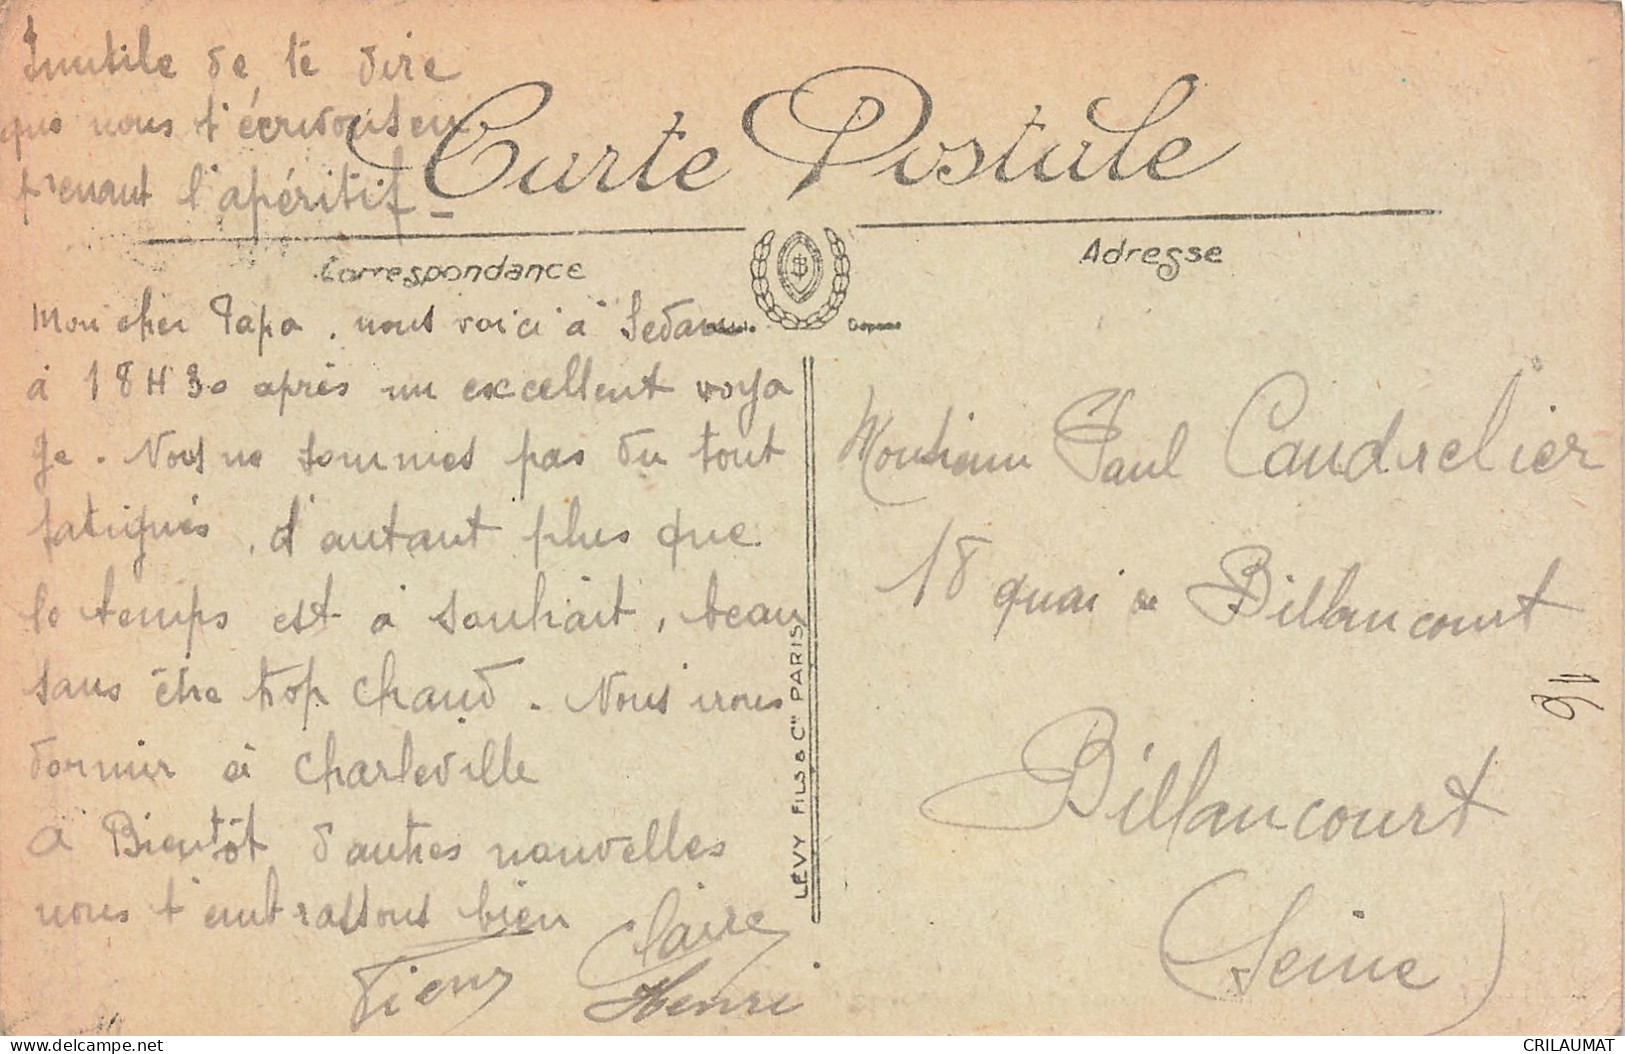 Inutile de te dire
que nous t'écrivons en
prenant l'apéritif -
Carte Postale
Correspondance
Adresse
Mon cher Papa, nous voici à Sedan
à 18H30 après un excellent voya
ge. Nous ne sommes pas du tout
fatigués, d'autant plus que
le temps est à souhait, beau
sans être trop chaud. Nous irons
dormir à Charleville
A Bientôt d'autres nouvelles
nous t'embrassons bien
Claire
Henri
LÉVY FILS & Cie PARIS
Monsieur Paul Caudrelier
18 quai de Billancourt
Billancourt
(Seine)
delcampe.net
CRILAUMAT